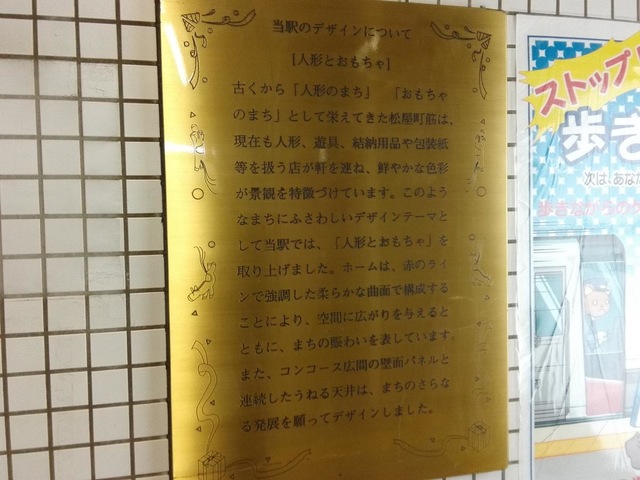 当駅のデザインについて
[人形とおもちゃ]
古くから「人形のまち」 「おもちゃ
のまち」として栄えてきた松屋町筋は、
現在も人形、遊具、結納用品や包装紙
等を扱う店が軒を連ね、鮮やかな色彩
が景観を特徴づけています。このよう
なまちにふさわしいデザインテーマと
して当駅では、「人形とおもちゃ」を
取り上げました。ホームは、赤のライ
ンで強調した柔らかな曲面で構成する
ことにより、空間に広がりを与えると
ともに、まちの賑わいを表しています。
また、コンコース広間の壁面パネルと
連続したうねる天井は、まちのさらな
る発展を願ってデザインしました。
ストップ
歩き
次は、あなた
歩きながらの